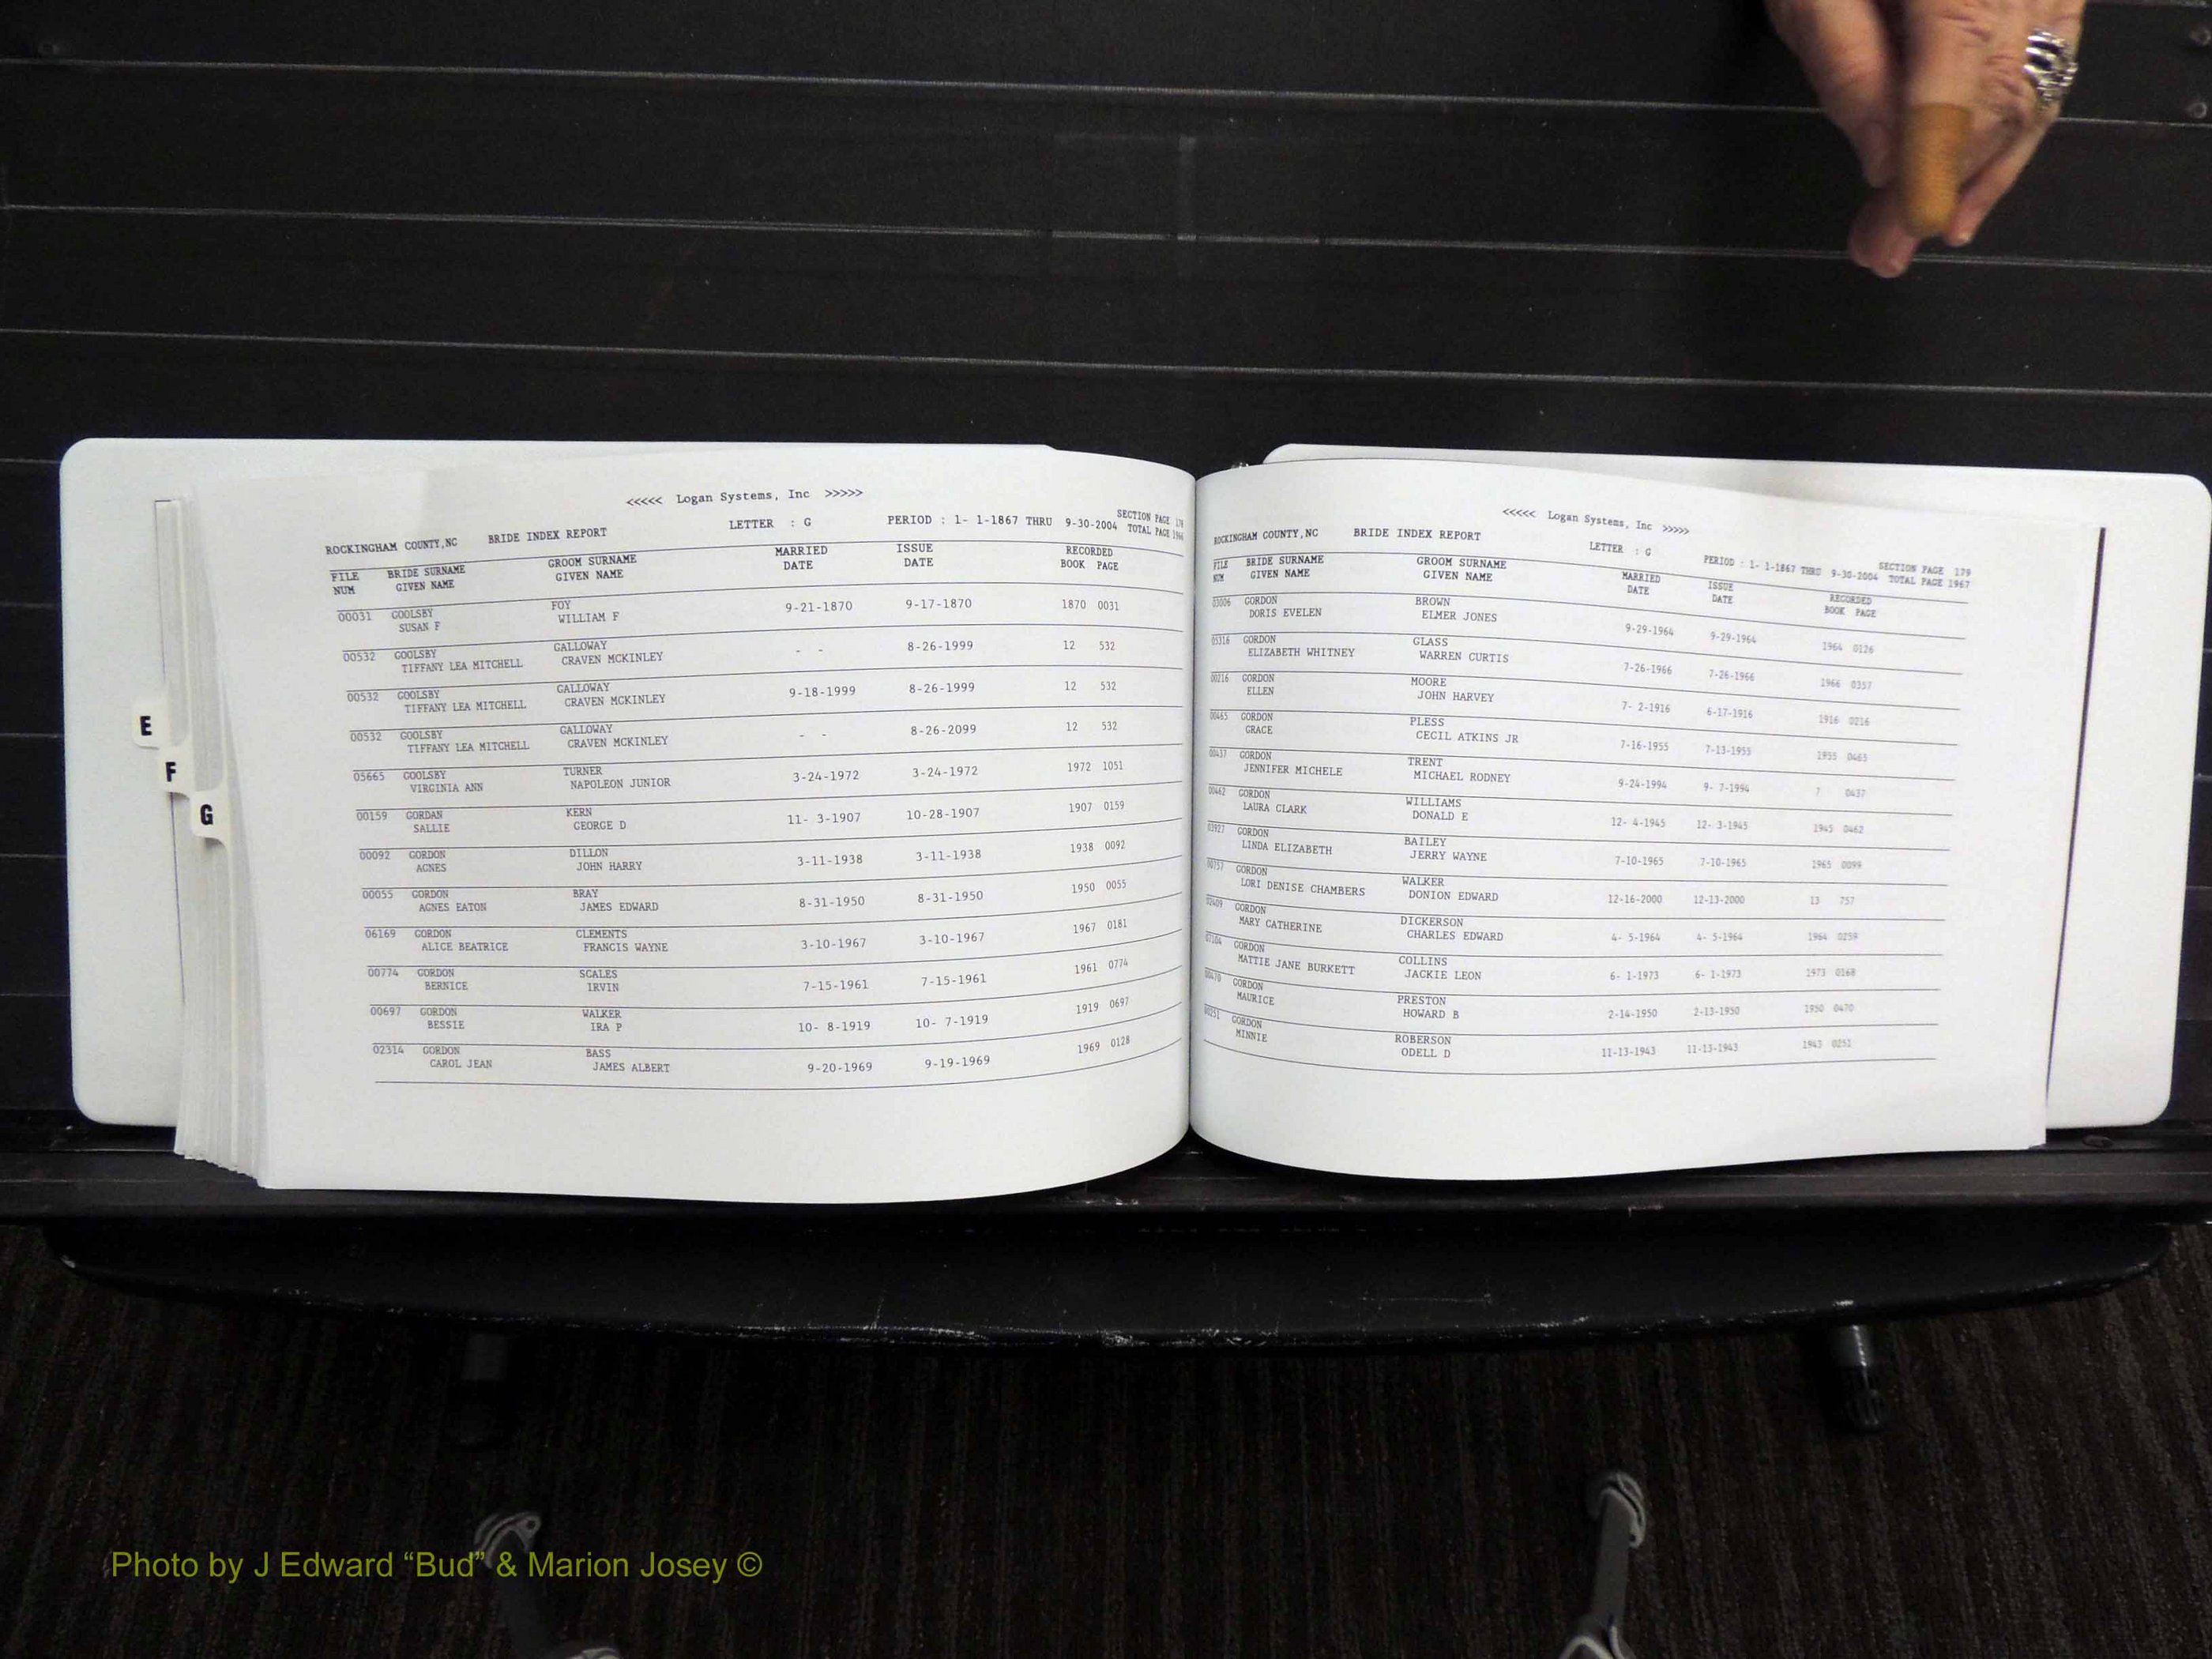 <<<<< Logan Systems, Inc >>>>>
ROCKINGHAM COUNTY,NC BRIDE INDEX REPORT LETTER : G PERIOD : 1- 1-1867 THRU 9-30-2004 SECTION PAGE 178
TOTAL PAGE 1966
FILE BRIDE SURNAME GROOM SURNAME MARRIED ISSUE RECORDED
NUM GIVEN NAME GIVEN NAME DATE DATE BOOK PAGE
00031 GOOLSBY FOY 9-21-1870 9-17-1870 1870 0031
SUSAN F WILLIAM F
00532 GOOLSBY GALLOWAY - - 8-26-1999 12 532
TIFFANY LEA MITCHELL CRAVEN MCKINLEY
00532 GOOLSBY GALLOWAY 9-18-1999 8-26-1999 12 532
TIFFANY LEA MITCHELL CRAVEN MCKINLEY
00532 GOOLSBY GALLOWAY - - 8-26-2099 12 532
TIFFANY LEA MITCHELL CRAVEN MCKINLEY
05665 GOOLSBY TURNER 3-24-1972 3-24-1972 1972 1051
VIRGINIA ANN NAPOLEON JUNIOR
00159 GORDAN KERN 11- 3-1907 10-28-1907 1907 0159
SALLIE GEORGE D
00092 GORDON DILLON 3-11-1938 3-11-1938 1938 0092
AGNES JOHN HARRY
00055 GORDON BRAY 8-31-1950 8-31-1950 1950 0055
AGNES EATON JAMES EDWARD
06169 GORDON CLEMENTS 3-10-1967 3-10-1967 1967 0181
ALICE BEATRICE FRANCIS WAYNE
00774 GORDON SCALES 7-15-1961 7-15-1961 1961 0774
BERNICE IRVIN
00697 GORDON WALKER 10- 8-1919 10- 7-1919 1919 0697
BESSIE IRA P
02314 GORDON BASS 9-20-1969 9-19-1969 1969 0128
CAROL JEAN JAMES ALBERT
E
F
G
<<<<< Logan Systems, Inc >>>>>
ROCKINGHAM COUNTY,NC BRIDE INDEX REPORT LETTER : G PERIOD : 1- 1-1867 THRU 9-30-2004 SECTION PAGE 179
TOTAL PAGE 1967
FILE BRIDE SURNAME GROOM SURNAME MARRIED ISSUE RECORDED
NUM GIVEN NAME GIVEN NAME DATE DATE BOOK PAGE
03006 GORDON BROWN 9-29-1964 9-29-1964 1964 0126
DORIS EVELEN ELMER JONES
05316 GORDON GLASS 7-26-1966 7-26-1966 1966 0357
ELIZABETH WHITNEY WARREN CURTIS
00216 GORDON MOORE 7- 2-1916 6-17-1916 1916 0216
ELLEN JOHN HARVEY
00465 GORDON PLESS 7-16-1955 7-13-1955 1955 0465
GRACE CECIL ATKINS JR
00437 GORDON TRENT 9-24-1994 9- 7-1994 7 0437
JENNIFER MICHELE MICHAEL RODNEY
00462 GORDON WILLIAMS 12- 4-1945 12- 3-1945 1945 0462
LAURA CLARK DONALD E
03927 GORDON BAILEY 7-10-1965 7-10-1965 1965 0099
LINDA ELIZABETH JERRY WAYNE
00757 GORDON WALKER 12-16-2000 12-13-2000 13 757
LORI DENISE CHAMBERS DONION EDWARD
GORDON DICKERSON 4- 5-1964 4- 5-1964 1964 0259
MARY CATHERINE CHARLES EDWARD
GORDON COLLINS 6- 1-1973 6- 1-1973 1973 0168
MATTIE JANE BURKETT JACKIE LEON
00470 GORDON PRESTON 2-14-1950 2-13-1950 1950 0470
MAURICE HOWARD B
00251 GORDON ROBERSON 11-13-1943 11-13-1943 1943 0251
MINNIE ODELL D
Photo by J Edward “Bud” & Marion Josey ©